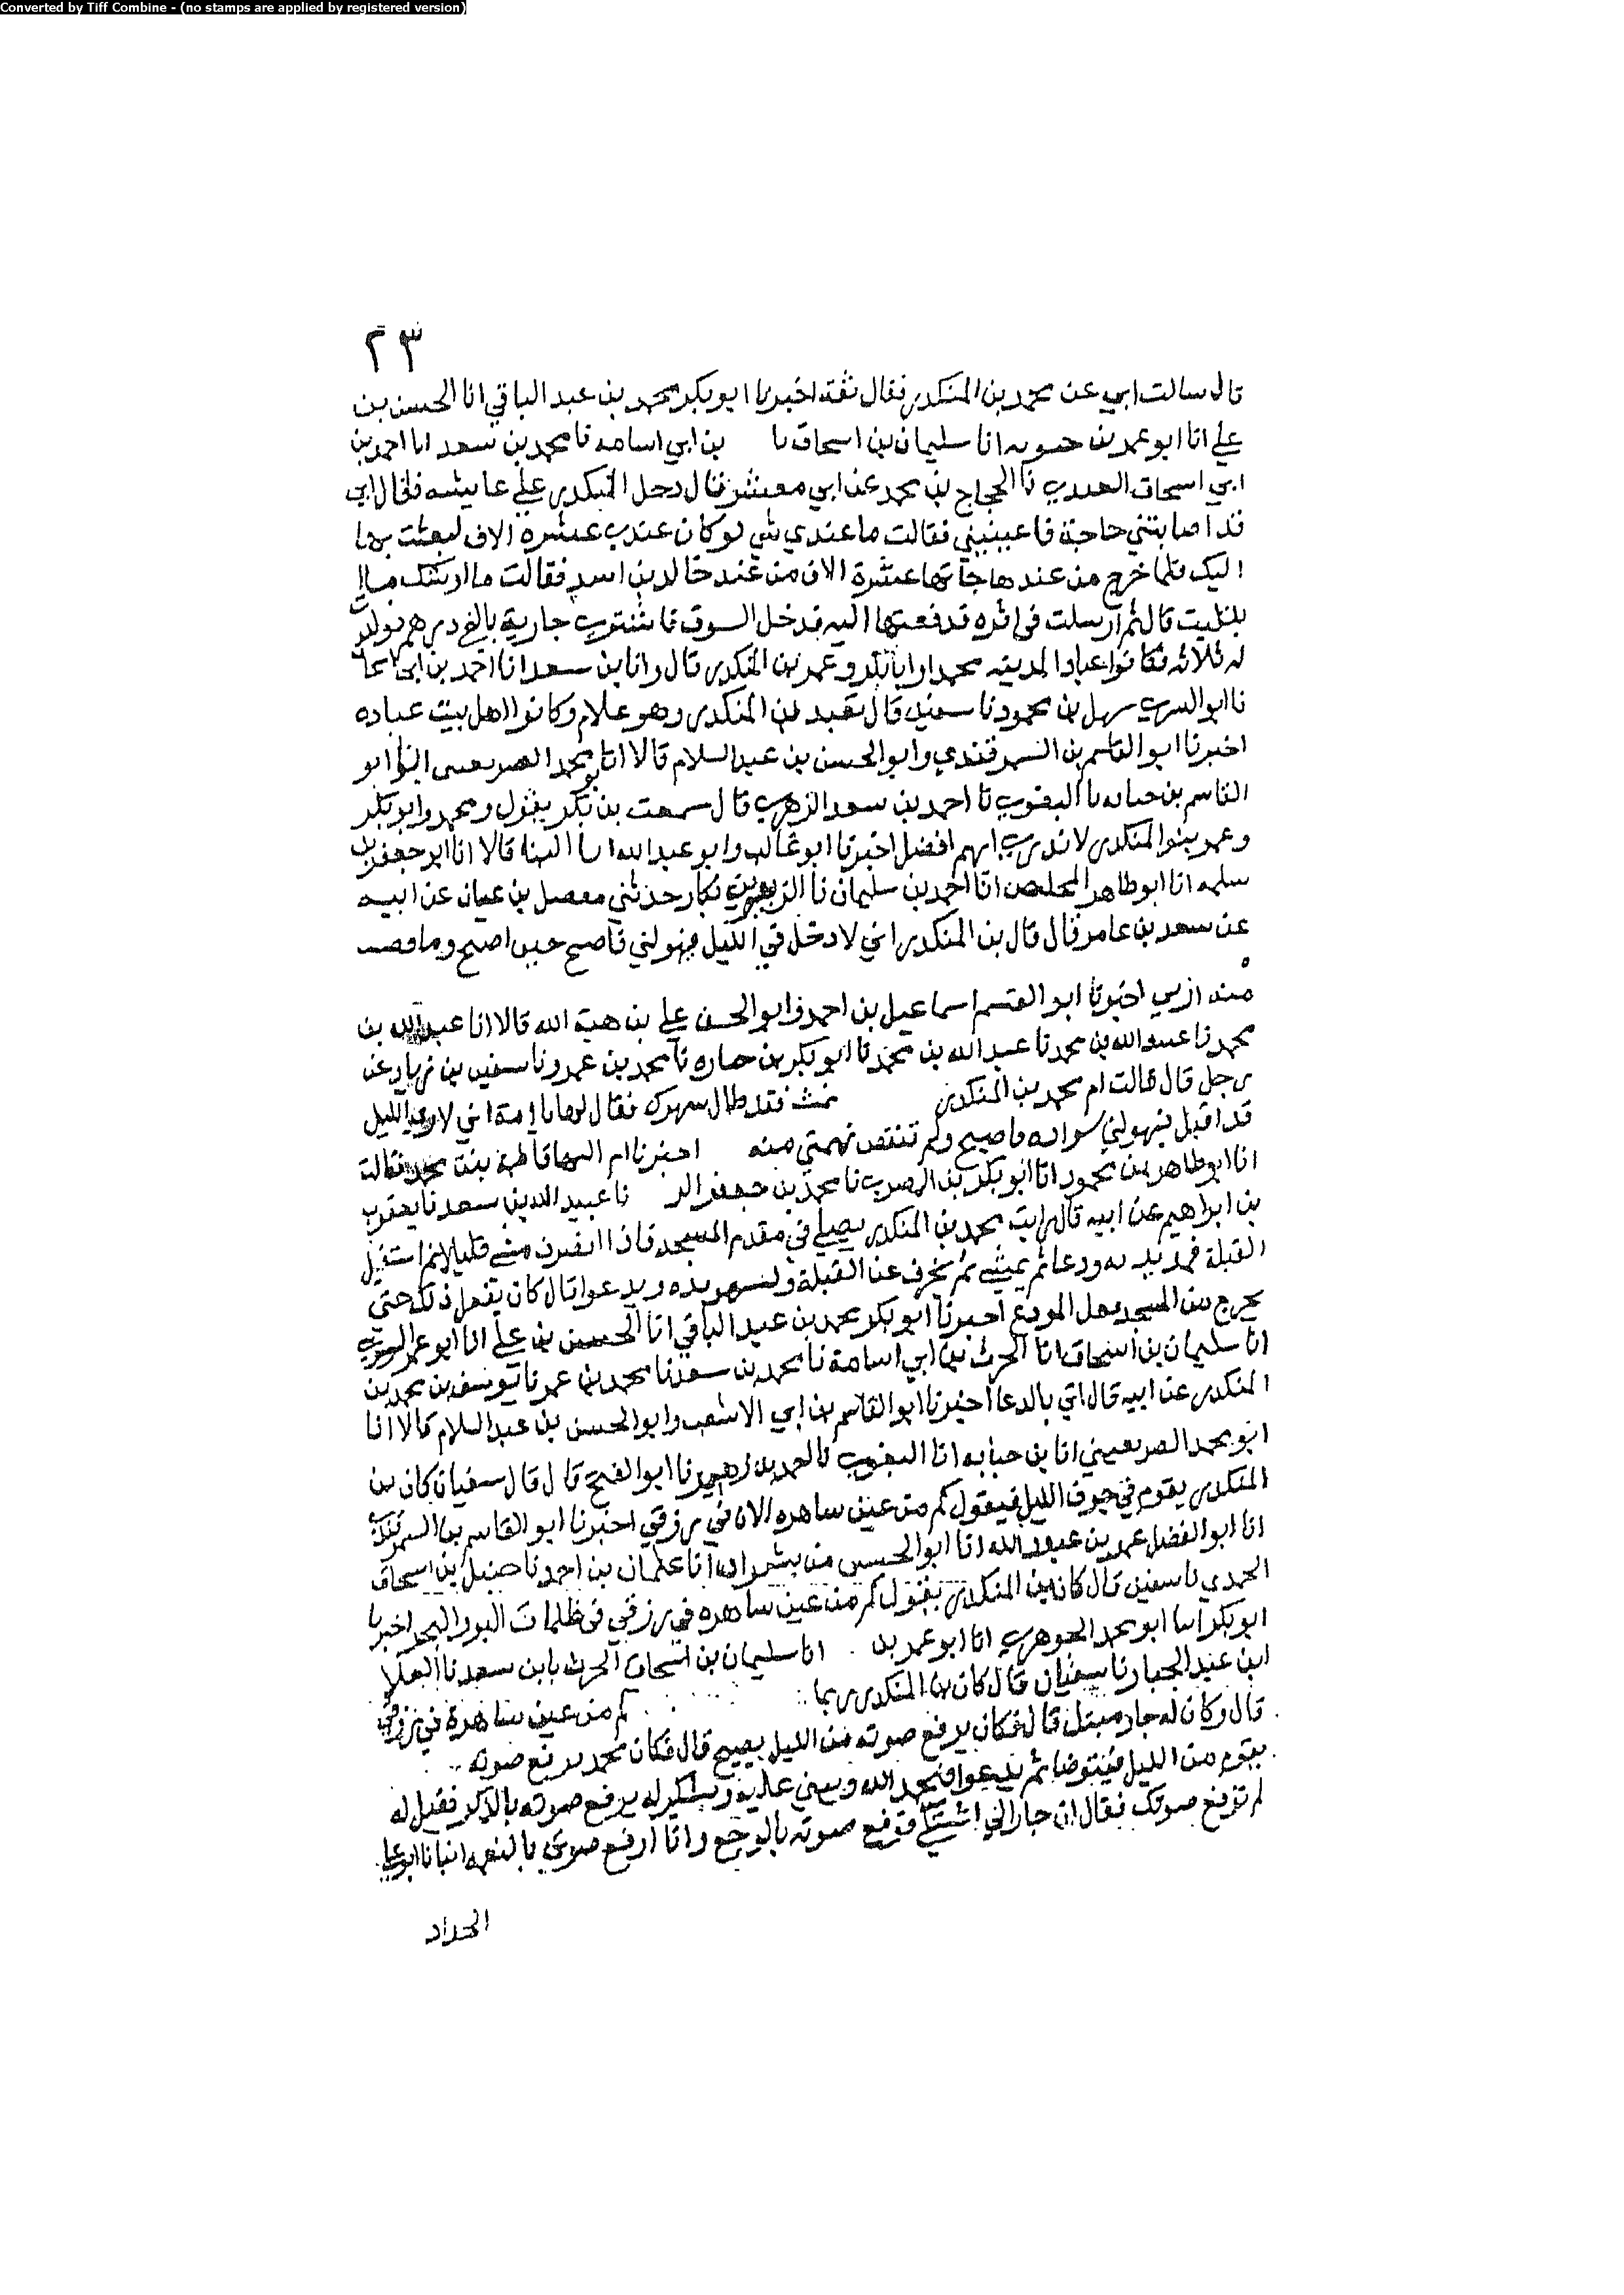 Converted by Tiff Combine - (no stamps are applied by registered version)
٢٣
قال سالت ابي عن محمد بن المنكدر فقال ثقة اخبرنا ابو بكر محمد بن عبد الباقي انا الحسن بن
علي انا ابو عمر بن حيويه انا سليمان بن اسحاق نا بن ابي اسامه نا محمد بن سعد انا احمد بن
ابي اسحاق العبدي نا الحجاج بن محمد عن ابي معشر قال دخل المنكدر علي عايشه فقال اني
قد اصابتني حاجة فاعينيني فقالت ما عندي شي لو كان عندي عشرة الاف لبعثت بها
اليك فلما خرج من عندها جاتها عشرة الاف من عند خالد بن اسد فقالت ما اوشك ما
بليت قال ثم ارسلت في اثره فدفعتها اليه فدخل السوق فاشترى جارية بالف درهم فولدت
له ثلاثه فكانوا عباد المدينه محمدا وابا بكر وعمر بن المنكدر قال وانا بن سعد انا احمد بن ابي اسحاق
نا ابو السري سهل بن محمود نا سفين قال تعبد بن المنكدر وهو غلام وكانوا اهل بيت عباده
اخبرنا ابو القاسم بن السمرقندي وابو الحسن بن عبد السلام قالا انا ابو محمد الصريفيني انا ابو
القاسم بن حبابه نا البغوي نا احمد بن سعد الزهري قال سمعت بن بكر يقول ومحمد وابو بكر
وعمر بنوا المنكدر لا ندري ايهم افضل اخبرنا ابو غالب وابو عبد الله ابنا البنا قالا انا ابو جعفر بن
سلمه انا ابو طاهر المخلص انا احمد بن سليمان نا الزبير بن بكار حدثني مفضل بن غسان عن ابيه
عن سعد بن عامر قال قال بن المنكدر اني لادخل في الليل فيهولني فاصبح حين اصبح وما قضيت
منه اربي اخبرنا ابو القسم اسماعيل بن احمد وابو الحسن علي بن هبة الله قالا انا عبد الله بن
محمد نا عبيد الله بن محمد نا عبد الله بن محمد نا ابو بكر بن نا محمد بن عمرو نا سفين بن عن
رجل قال قالت ام محمد بن المنكدر فقد طال سهرك فقال لها يا امة اني الليل
قد اقبل فيهولني سواده فاصبح ولم تنقض نهمتي منه اخبرتنا ام البها فاطمة بنت محمد قالت
انا ابو طاهر بن محمود انا ابو بكر بن المصري نا محمد بن جعفر نا عبيد الله بن سعد نا يعقوب
بن ابراهيم عن ابيه قال رايت محمد بن المنكدر يصلي في مقدم المسجد فاذا انصرف مشى قليلا ثم استقبل
القبلة فمد يديه ودعا ثم يمشي ثم ينحرف عن القبلة ويشهر يده ويدعوا قال كان يفعل ذلك حتى
يخرج من المسجد فعل المودع اخبرنا ابو بكر محمد بن عبد الباقي انا الحسن بن علي انا ابو عمر
انا سليمان بن اسحاق انا الحرث بن ابي اسامة نا محمد بن سعد نا محمد بن عمر نا يوسف بن محمد بن
المنكدر عن ابيه قال اتي بالدعا اخبرنا ابو القاسم بن ابي الاشعب وابو الحسن بن عبد السلام قالا انا
ابو محمد الصريفيني انا بن حبابه انا البغوي نا احمد بن زهير نا ابو الفتح قال قال سفيان كان بن
المنكدر يقوم في جوف الليل فيقول كم من عين ساهره الان في رزقي اخبرنا ابو القاسم بن السمرقندي
انا ابو الفضل عمر بن عبيد الله انا ابو الحسين بن بشران انا عثمان بن احمد نا حنبل بن اسحاق
الحمدي نا سفين قال كان بن المنكدر يقول كم من عين ساهره في رزقي في ظلمات البر والبحر اخبرنا
ابو بكر انبا ابو محمد الجوهري انا ابو عمر بن انا سليمان بن اسحاق الحرث نا بن سعد نا العلا
ابن عبد الجبار نا سفيان قال كان بن المنكدر ربما كم من عين ساهرة في رزقي
قال وكان له جار مبتلى قال فكان يرفع صوته من الليل يصيح قال فكان محمد يرفع صوته
يقوم من الليل فيتوضا ثم يدعوا فيحمد الله ويثني عليه ويشكره يرفع صوته بالذكر فقيل له
لم ترفع صوتك فقال ان جارا لي اشتكى فرفع صوته بالوجع وانا ارفع صوتي بالنعمه انبانا ابو علي
الحداد